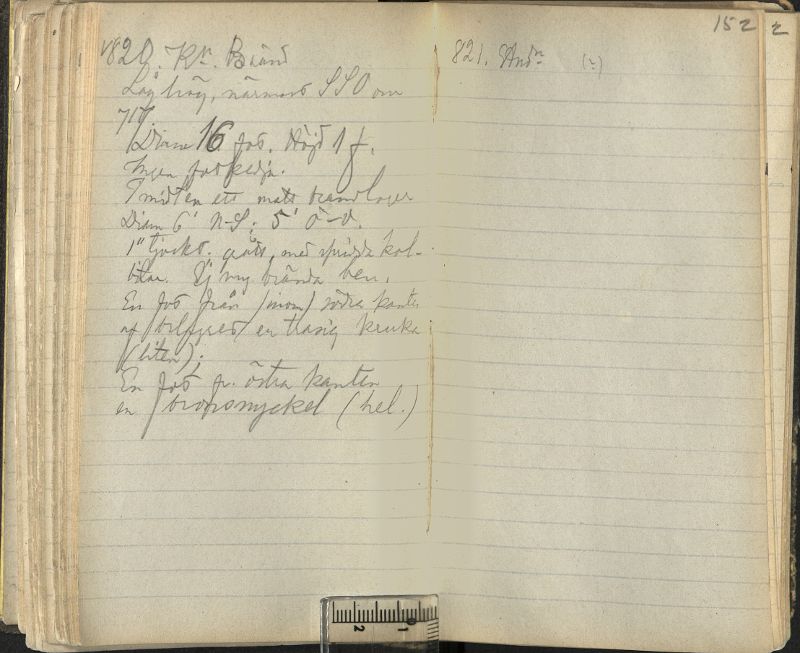 820. Kr. Bränd
Låg hög, närmast SSO om
717.
Diam 16 fot. Höjd 1 f.
Ingen fotkedja.
I midten ett matt brandlager
Diam 6' N-S; 5' Ö-V.
1" tjockt. gräft, med spridda kol-
bitar. Ej brända ben.
En fot från (inom) södra kanten
af bålet en trasig kruka
(liten);
En fot fr. östra kanten
en bronsnyckel (hel.)
821. And.
152
2